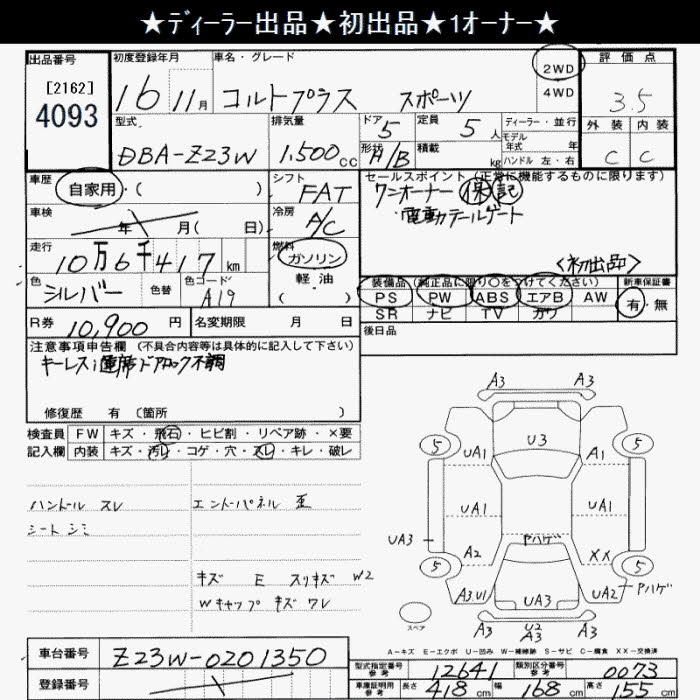 ★ディーラー出品★初出品★1オーナー★
出品番号 初度登録年月 車名・グレード 2WD 評価点
[2162] 16 11月 コルトプラス スポーツ 4WD 3.5
4093 型式 排気量 ドア 5 定員 5人 ディーラー・並行 外装 内装
モデル年式 年
DBA-Z23W 1,500cc 形状 A/B 積載 kg ハンドル 左・右 C C
車歴 自家用・( ) シフト FAT セールスポイント(正常に機能するものに限ります)
ワンオーナー 保 記
車検 年 月( 日) 冷房 A/C ・電動テールゲート
走行 10万6千417km 燃料 ガソリン 軽油 ( ) <初出品>
色 シルバー 色替 色コード A19 装備品(純正品に限り○をつけてください) 新車保証書
PS PW ABS エアB AW 有・無
SR ナビ TV カワ
R券 10,900円 名変期限 月 日 後日品
注意事項申告欄(不具合内容等は具体的に記入して下さい)
キーレス;運席ドアロック不調
修復歴 有(箇所 )
検査員 FW キズ・飛石・ヒビ割・リペア跡・×要
記入欄 内装 キズ・汚れ・コゲ・穴・スレ・キレ・破レ
ハンドル スレ エンドパネル 歪
シート シミ
キズ E スリキズ W2
Wキャップ キズ ワレ
A3 A3
U3
5 UA1 A1 5
UA1 UA1
UA3 ヤハゲ
5 A2 XX 5
A3.U1 UA3 UA2 ヤハゲ
スペア A3 U2 A3 A3
A-キズ E-エクボ U-凹み W-補修跡 S-サビ C-腐食 XX-交換済
車台番号 Z23W-0201350 型式指定番号 参考 12641 類別区分番号 参考 0073
登録番号 車庫証明用 参考 長さ 418cm 幅 168cm 高さ 155cm